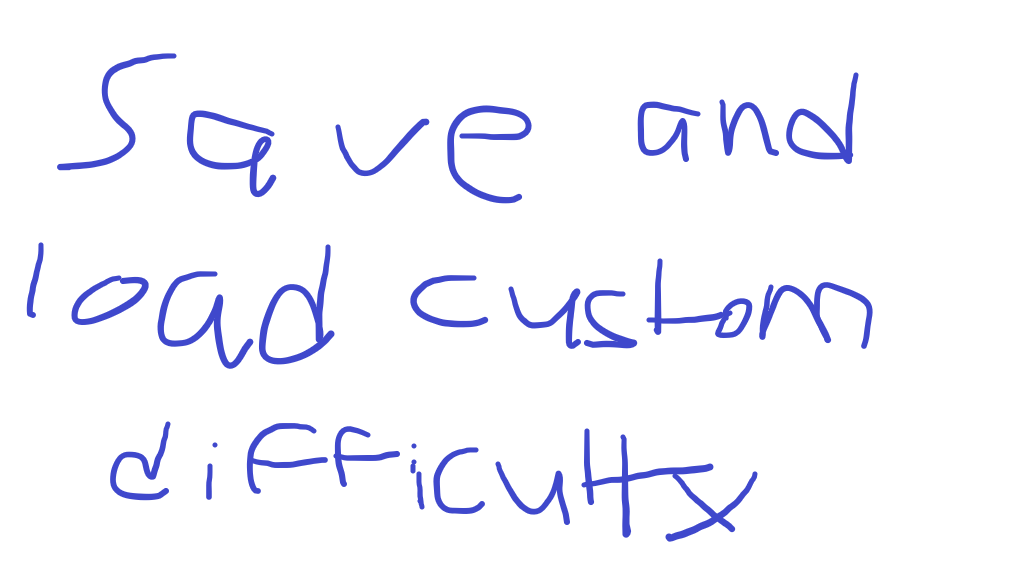 Save and
load custom
difficulty